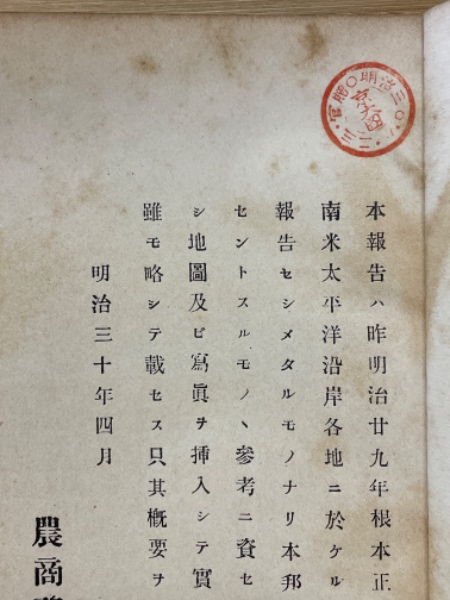 本報告ハ昨明治廿九年根本正
南米太平洋沿岸各地ニ於ケル
報告セシメタルモノナリ本邦
セントスルモノヽ參考ニ資セ
シ地圖及ビ寫眞ヲ挿入シテ實
雖モ略シテ載セス只其概要ヲ
明治三十年四月
農商